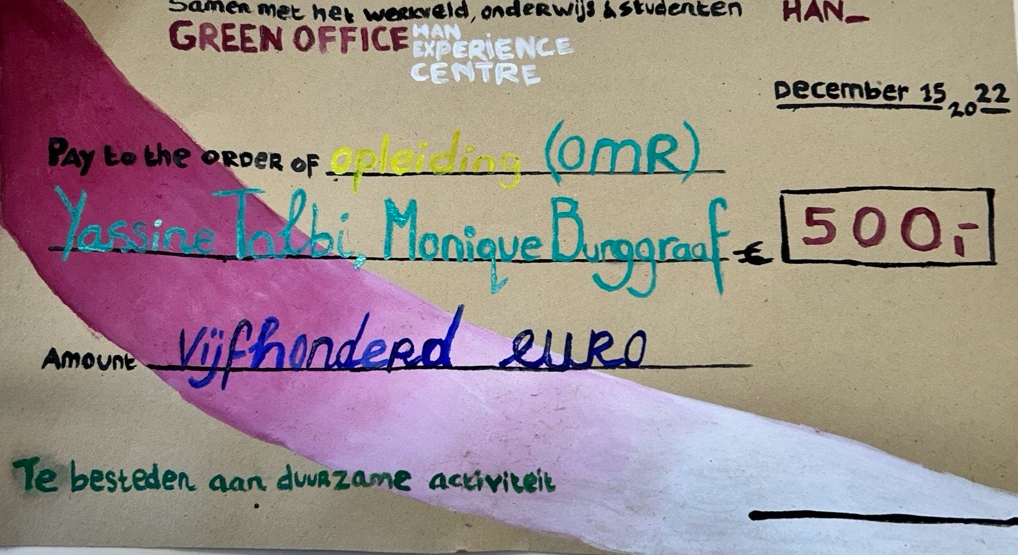 Samen met het werkveld, onderwijs & studenten
HAN_
GREEN OFFICE HAN EXPERIENCE CENTRE
December 15, 2022
Pay to the order of opleiding (OMR)
Yassine Talbi, Monique Burggraaf € 500,-
Amount Vijfhonderd euro
Te besteden aan duurzame activiteit